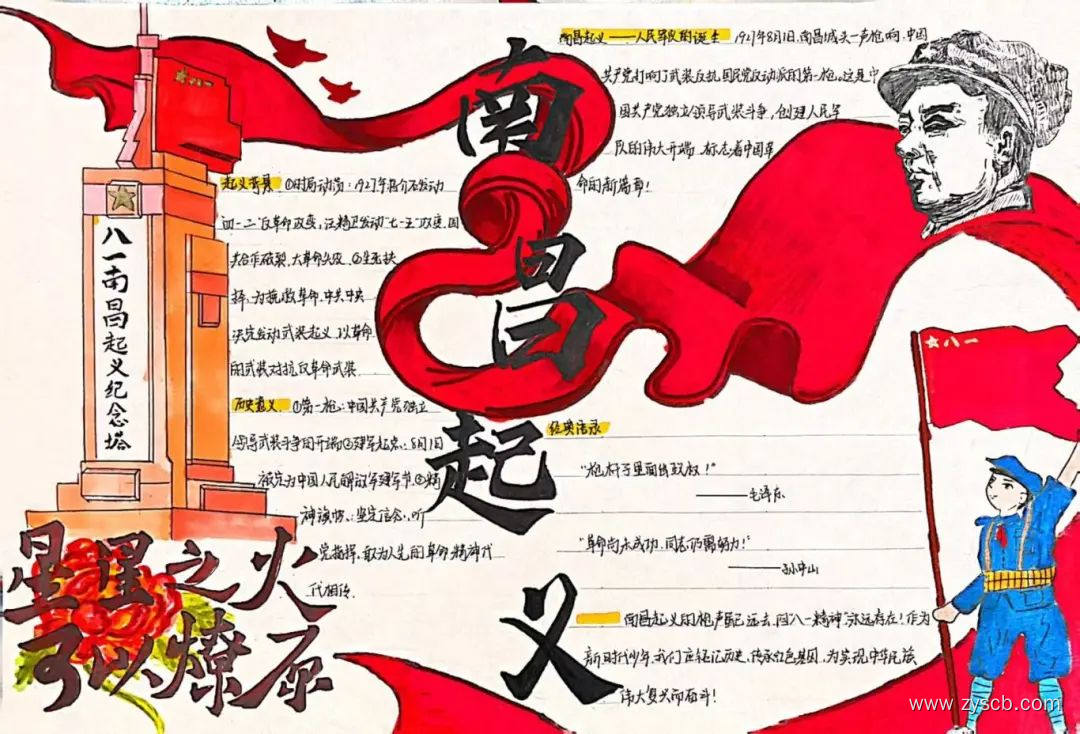 南昌起义
南昌起义——人民军队的诞生 1927年8月1日,南昌城头一声枪响,中国
共产党打响了武装反抗国民党反动派的第一枪。这是中
国共产党独立领导武装斗争,创建人民军
队的伟大开端,标志着中国革
命的新篇章!
起义背景 ①时局动荡:1927年蒋介石发动
"四·一二"反革命政变,汪精卫发动"七·一五"政变,国
共合作破裂,大革命失败。②
择:为挽救革命,中共中央
决定发动武装起义,以革命
的武装对抗反革命武装
历史意义 ①第一枪:中国共产党独立
领导武装斗争的开端②建军起点:8月1日
被定为中国人民解放军建军节③精
神 :坚定信念、听
党指挥、敢为人先的革命精神代
代相传
八一南昌起义纪念塔
星星之火
可以燎原
经典语录
"枪杆子里面出政权!"
——毛泽东
"革命尚未成功,同志仍需努力!"
——孙中山
南昌起义的枪声虽已远去,但八一精神永远存在!作为
新时代少年,我们应铭记历史,传承红色基因,为实现中华民族
伟大复兴而奋斗!
八一
www.zyscb.com